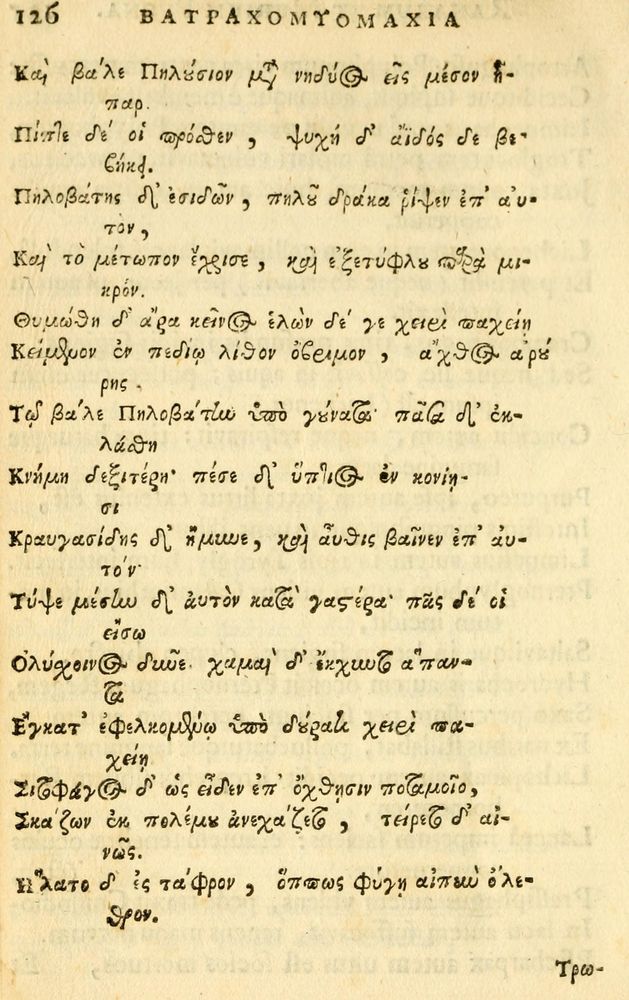 126 ΒΑΤΡΑΧΟΜΥΟΜΑΧΙΑ
Καὶ βάλε Πηλούσιον μ̅τ̅ νηδύος εἰς μέσον ἧ-
παρ.
Πίπτε δέ οἱ πρόσθεν, ψυχή δ' ἀϊδός δε βε-
βήκει.
Πηλοβάτης δ' ἐσιδὼν, πηλοῦ δράκα ῥίψεν ἐπ' αὐ-
τὸν,
Καὶ τὸ μέτωπον ἔχρισε, καὶ ἐξετύφλου παρὰ μι-
κρόν.
Θυμώθη δ' ἄρα κεῖνος ἑλὼν δέ γε χειρὶ παχείῃ
Κείμενον ἐν πεδίῳ λίθον ὄβριμον, ἄχθος ἀρού
ρης.
Τῷ βάλε Πηλοβάτην ὑπὸ γούνατα· πᾶσα δ' ἐκ-
λάσθη
Κνήμη δεξιτέρη· πέσε δ' ὕπτιος ἐν κονίῃ-
σι
Κραυγασίδης δ' ἤμυνε, καὶ αὖθις βαῖνεν ἐπ' αὐ-
τόν·
Τύψε μέσην δ' αὐτὸν κατὰ γαστέρα· πᾶς δέ οἱ
εἴσω
Ὀλύσχοινος δῦνε· χαμαὶ δ' ἔκχυντο ἅπαν-
τα
Ἔγκατ' ἐφελκομένῳ ὑπὸ δούρατι χειρὶ πα-
χείῃ
Σιτοφάγος δ' ὡς εἶδεν ἐπ' ὄχθησιν ποταμοῖο,
Σκάζων ἐκ πολέμου ἀνεχάζετο, τείρετο δ' αἰ-
νῶς.
Ἥλατο δ' ἐς τάφρον, ὅππως φύγῃ αἰπὺν ὄλε-
θρον.
Τρω-